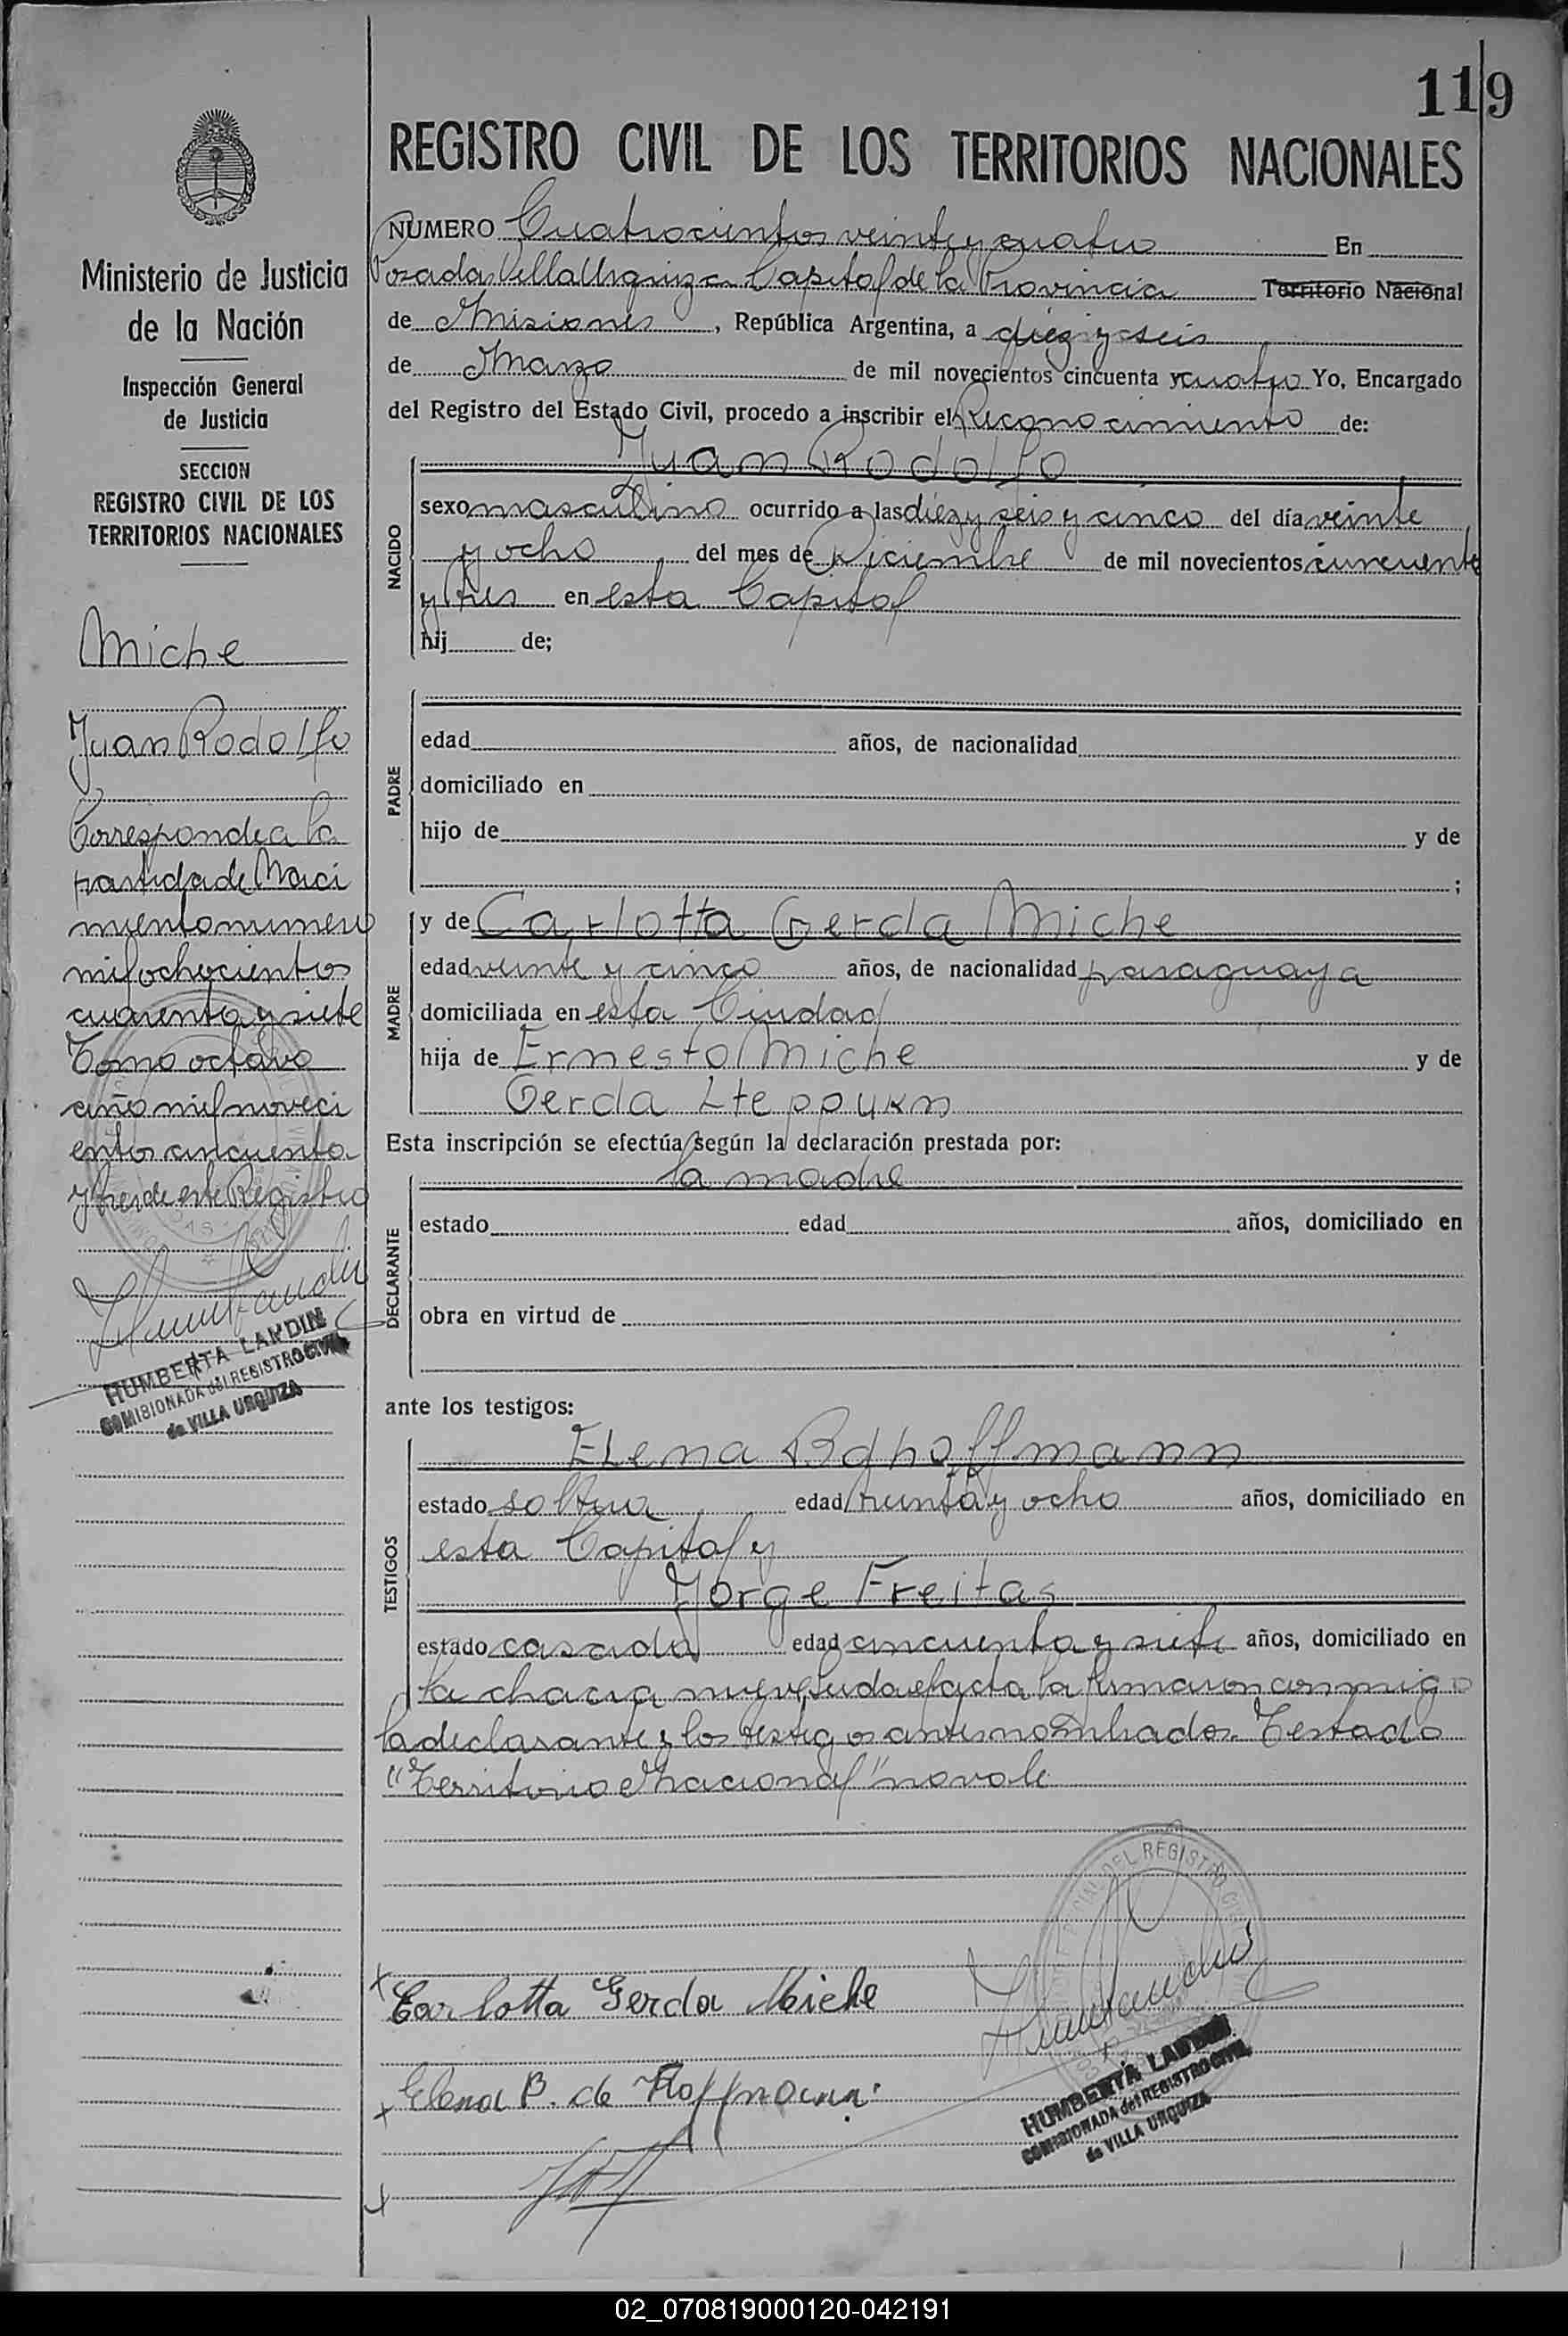 119
REGISTRO CIVIL DE LOS TERRITORIOS NACIONALES
Ministerio de Justicia
de la Nación
Inspección General
de Justicia
SECCION
REGISTRO CIVIL DE LOS
TERRITORIOS NACIONALES
Miche
Juan Rodolfo
Corresponde a la
partida de Naci
miento numero
mil ochocientos
cuarenta y siete
Tomo octavo
año mil noveci
entos cincuenta
y tres de este Registro
HUMBERTA LARDIN
COMISIONADA del REGISTRO CIVIL
de VILLA URQUIZA
NUMERO Cuatrocientos veinte y cuatro En
Posadas Villa Urquiza Capital de la Provincia Territorio Nacional
de Misiones, República Argentina, a diez y seis
de Marzo de mil novecientos cincuenta y cuatro Yo, Encargado
del Registro del Estado Civil, procedo a inscribir el Reconocimiento de:
NACIDO
Juan Rodolfo
sexo masculino ocurrido a las diez y seis y cinco del día veinte
y ocho del mes de Diciembre de mil novecientos cincuenta
y tres en esta Capital
hij de;
PADRE
edad años, de nacionalidad
domiciliado en
hijo de y de
;
MADRE
y de Carlotta Gerda Miche
edad veinte y cinco años, de nacionalidad paraguaya
domiciliada en esta Ciudad
hija de Ernesto Miche y de
Gerda
Esta inscripción se efectúa según la declaración prestada por:
DECLARANTE
la madre
estado edad años, domiciliado en
obra en virtud de
ante los testigos:
TESTIGOS
Elena Hoffmann
estado soltera edad treinta y ocho años, domiciliado en
esta Capital y
Jorge Freitas
estado casado edad cincuenta y siete años, domiciliado en
la chacra nueve Leida el acta la firmaron conmigo
la declarante y los testigos antes nombrados. Testado
"Territorio Nacional" no vale
DEL REGISTRO
Carlotta Gerda Miche
Elena B. de Hoffmann.
HUMBERTA LARDIN
COMISIONADA del REGISTRO CIVIL
de VILLA URQUIZA
02_070819000120-042191